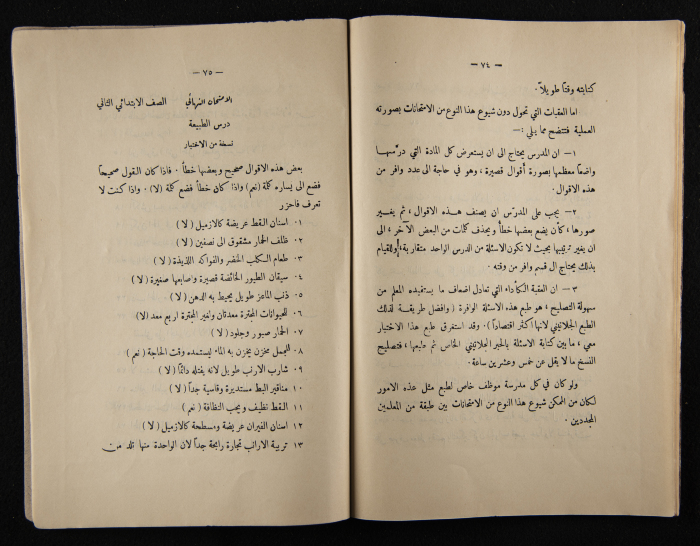 — ٧٤ —
كتابته وقتاً طويلاً.
اما العقبات التي تحول دون شيوع هذا النوع من الامتحانات بصورته
العملية فتتضح مما يلي :—
١— ان المدرس يحتاج الى ان يستعرض كل المادة التي درّسها
واضعاً معظمها بصورة أقوال قصيرة، وهو في حاجة الى عدد وافر من
هذه الاقوال.
٢— يجب على المدرّس ان يصنف هذه الاقوال، ثم يغيير
صورها، كأن يضع بعضها خطأ ويحذف كلمات من البعض الآخر، الى
ان يغير ترتيبها بحيث لا تكون الاسئلة من الدرس الواحد متقاربة، والقيام
بذلك يحتاج الى قسم وافر من وقته.
٣— ان العقبة الكأداء التي تعادل اضعاف ما يستفيده المعلم من
سهولة التصليح، هو طبع هذه الاسئلة الوافرة (وافضل طريقة لذلك
الطبع الجلاتيني لانها أكثر اقتصاداً). وقد استغرق طبع هذا الاختبار
معي، ما بين كتابة الاسئلة بالحبر الجلاتيني الخاص ثم طبعها، فتصليح
النسخ ما لا يقل عن خمس وعشرين ساعة.
ولو كان في كل مدرسة موظف خاص لطبع مثل هذه الامور
لكان من الممكن شيوع هذا النوع من الامتحانات بين طبقة من المعلمين
المجددين.
— ٧٥ —
الامتحان النهائي الصف الابتدائي الثاني
درس الطبيعة
نسخة من الاختبار
بعض هذه الاقوال صحيح وبعضها خطأ. فاذا كان القول صحيحاً
فضع الى يساره كلمة (نعم) واذا كان خطأ فضع كلمة (لا). واذا كنت لا
تعرف فاحزر
٠١ اسنان القط عريضة كالازميل (لا)
٠٢ ظلف الحمار مشقوق الى نصفين (لا)
٠٣ طعام الكلب الخضر والفواكه اللذيذة (لا)
٠٤ سيقان الطيور الخائضة قصيرة واصابعها صغيرة (لا)
٠٥ ذنب الماعز طويل يحيط به الدهن (لا)
٠٦ للحيوانات المجترة معدتان ولغير المجترة اربع معد (لا)
٠٧ الحمار صبور وجلود (لا)
٠٨ للجمل مخزن يخزن به الماء ليستمده وقت الحاجة (نعم)
٠٩ شارب الارنب طويل لانه يفتله دائماً (لا)
١٠ مناقير البط مستديرة وقاسية جداً (لا)
١١ القط نظيف ويحب النظافة (نعم)
١٢ اسنان الفيران عريضة ومسطحة كالازميل (لا)
١٣ تربية الارانب تجارة رابحة جداً لان الواحدة منها تلد من